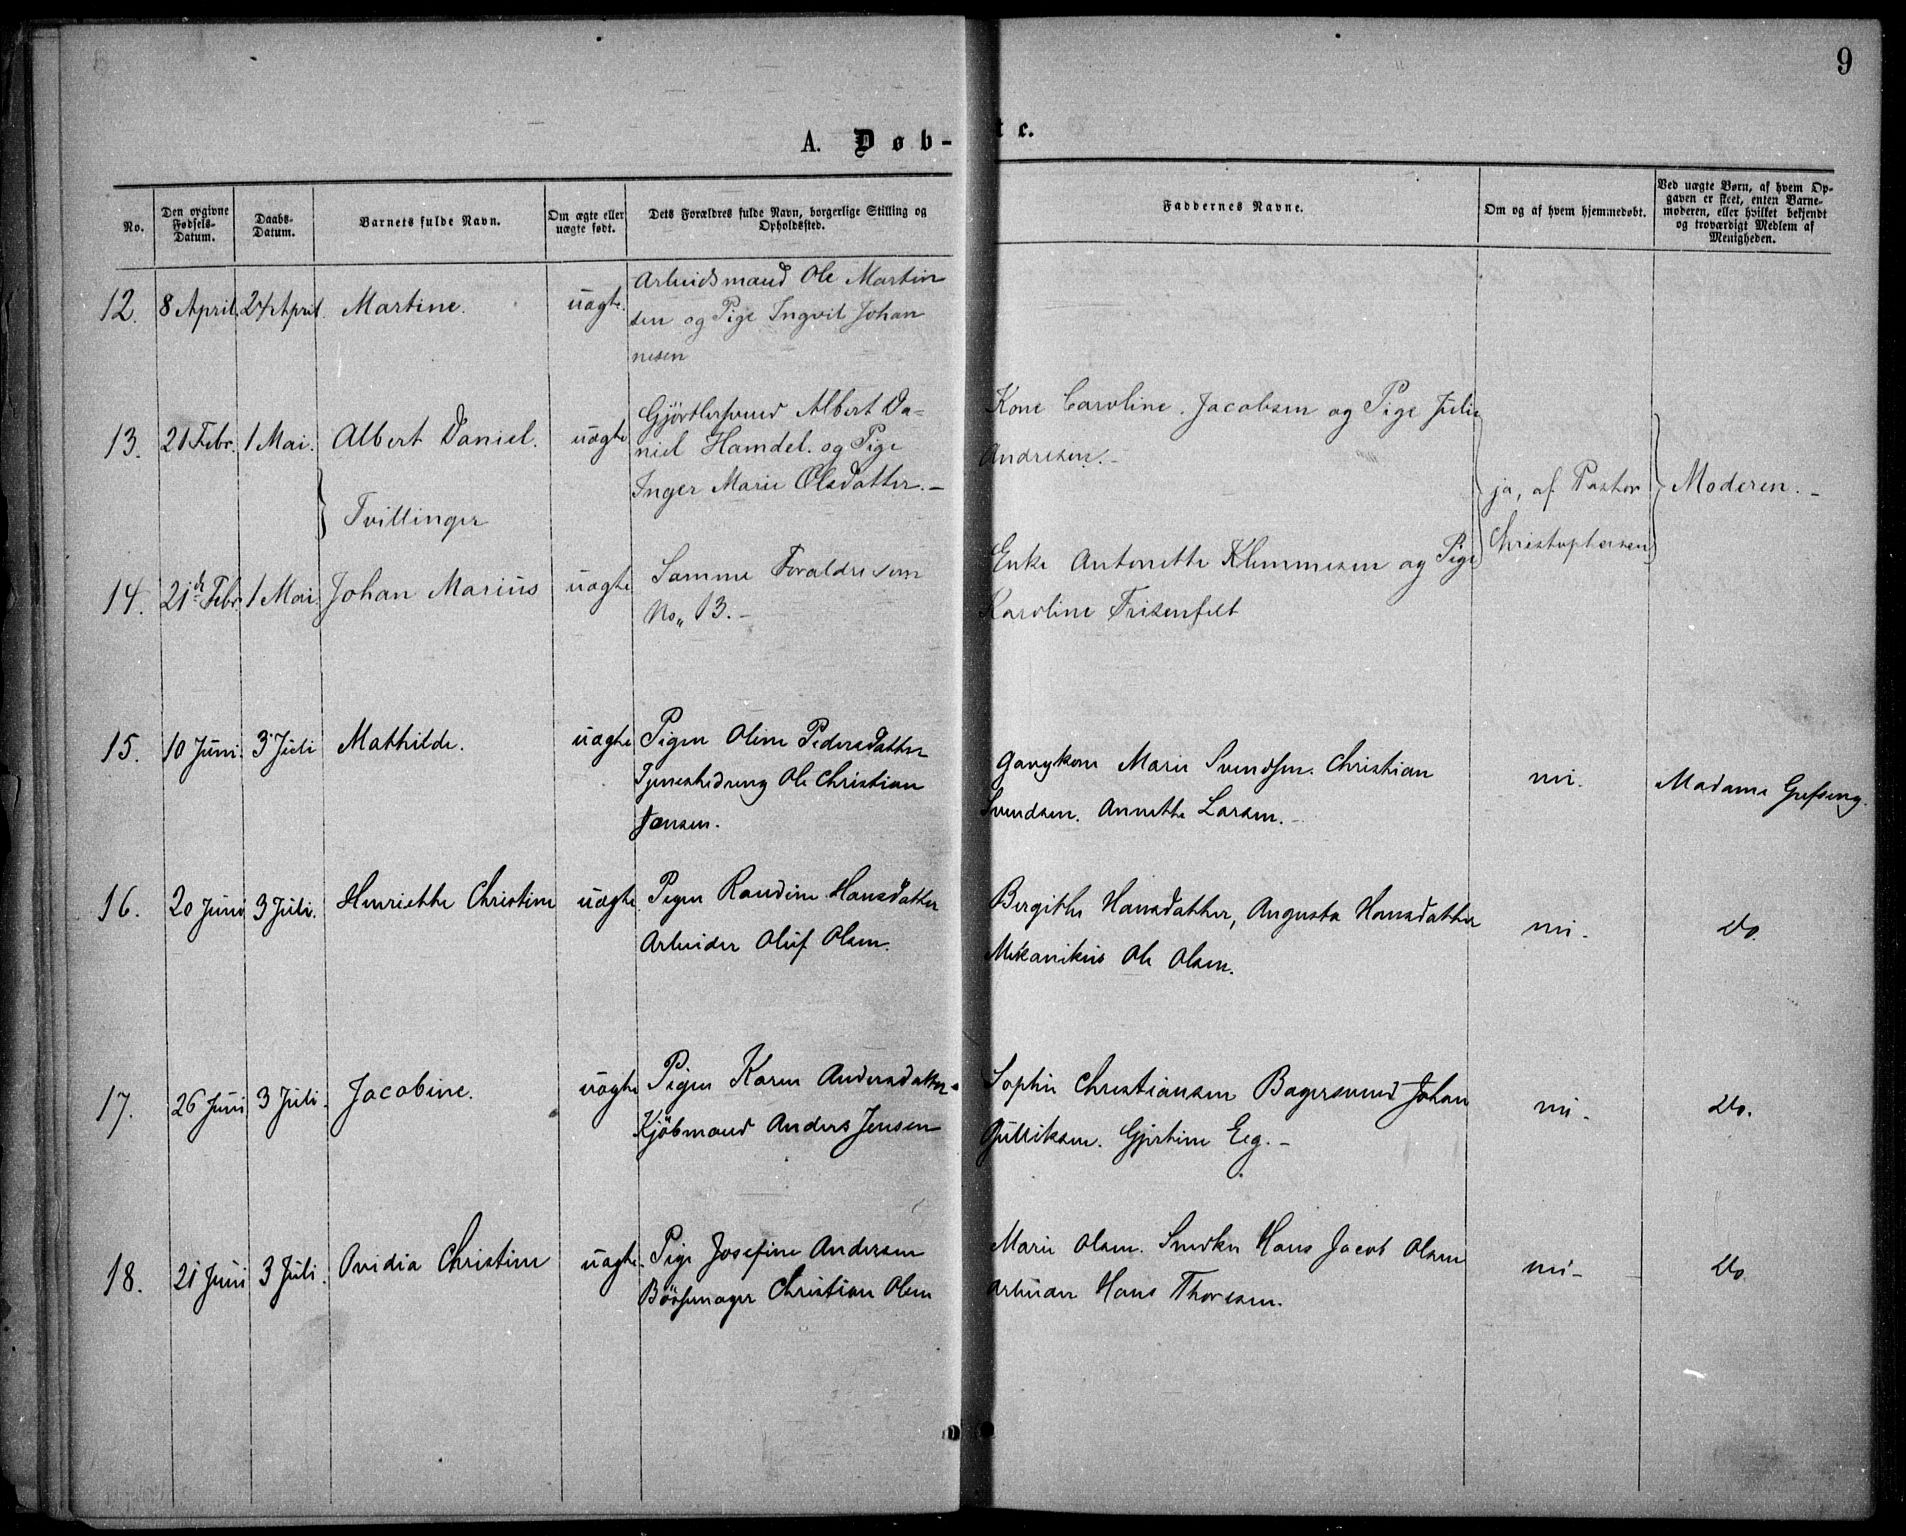 9
A. Døb-te.
No.
Den opgivne Fødsels-Datum.
Daabs-Datum.
Barnets fulde Navn.
Om ægte eller uægte født.
Dets Forældres fulde Navn, borgerlige Stilling og Opholdssted.
Faddernes Navne.
Om og af hvem hjemmedøbt.
Ved uægte Børn, af hvem Opgaven er skeet, enten Barnemoderen, eller hvilket bekjendt og troværdigt Medlem af Menigheden.
12. 8 April. 24 April. Martine. uægte.
Arbeidsmand Ole Martin
sen og Pige Ingvil Johan
nesen
13. 21 Febr. 1 Mai. Albert Daniel. uægte
Gjørtlersvend Albert Da-
niel Hamdel. og Pige
Inger Marie Olsdatter.-
Kone Caroline Jacobsen og Pige Julie
Andresen.-
Tvillinger
ja, af Pastor
Christophersen
Moderen.-
14. 21de Febr. 1 Mai. Johan Marius uægte
Samme Forældre som
No. 13.-
Enke Antonette Klemmesen og Pige
Karoline Frisenfelt
15. 10 Juni. 3 Juli Mathilde. uægte
Pigen Oline Pedersdatter
Tjenestedreng Ole Christian
Jensen.
Marie Svendsen. Christian
Svendsen. Annette Larsen.-
nei. Madame
16. 20 Juni 3 Juli. Henriette Christine uægte
Pigen Randine Hansdatter
Arbeider Oluf Olsen.
Birgithe Hansdatter, Augusta Hansdatter
Mekanikus Ole Olsen.
nei- Do.
17. 26 Juni 3 Juli. Jacobine. uægte
Pigen Karen Andersdatter-
Kjøbmand Anders Jensen
Sophie Christiansen Bagersvend Johan
Gulliksen. Gjertine Eeg.-
nei- Do.
18. 21 Juni 3 Juli. Ovidia Christine uægte.
Pige Josefine Andersen
Bøssemager Christian Olsen
Marie Olsen. Snedker Hans Jacob Olsen
Arbeider Hans Thoresen.
nei- Do